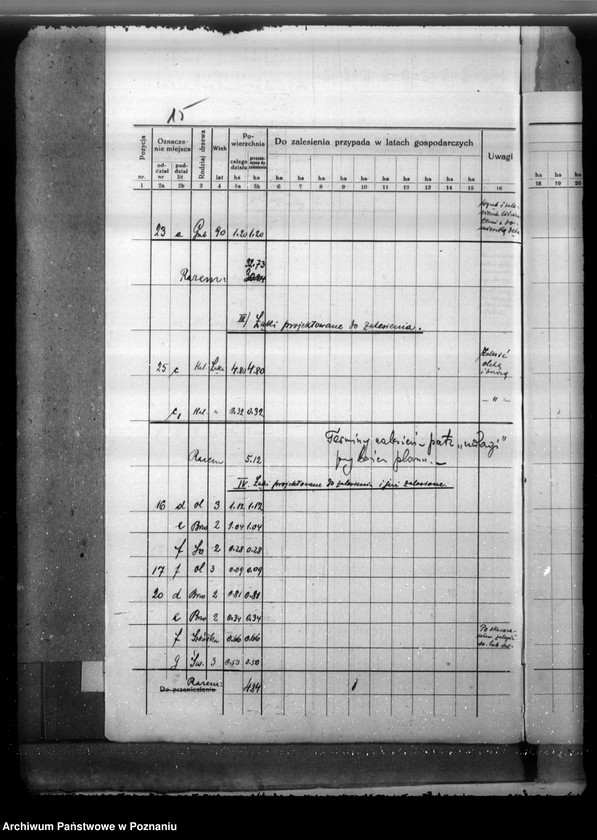 15
Pozycja
Oznaczenie miejsca
Rodzaj drzewa
Wiek
Powierzchnia
Do zalesienia przypada w latach gospodarczych
Uwagi
nr.
oddział nr
poddział lit
lat
całego działu ha
ha
ha ha ha ha ha ha ha ha ha ha
ha ha ha
1 2a 2b 3 4 5a 5b 6 7 8 9 10 11 12 13 14 15 16
18 19 20
23 a 90 1.20 1.20
32.73
Razem:
III/ projektowane do zalesienia.
25 c 4.80 4.80
c₁ " 0.32 0.32 — " —
Razem 5.12
Terminy zalesień - patrz „uwagi"
przy końcu planu.-
IV. Łąki projektowane do zalesienia i już zalesione.
16 d ol 3 1.12 1.12
e Brz 2 1.04 1.04
f So 2 0.28 0.28
17 f ol 3 0.09 0.09
20 d Brz 2 0.81 0.81
e Brz 2 0.34 0.34
f 0.66 0.66
g Św. 3 0.50 0.50
Razem:
Do przeniesienia 4.84
Archiwum Państwowe w Poznaniu